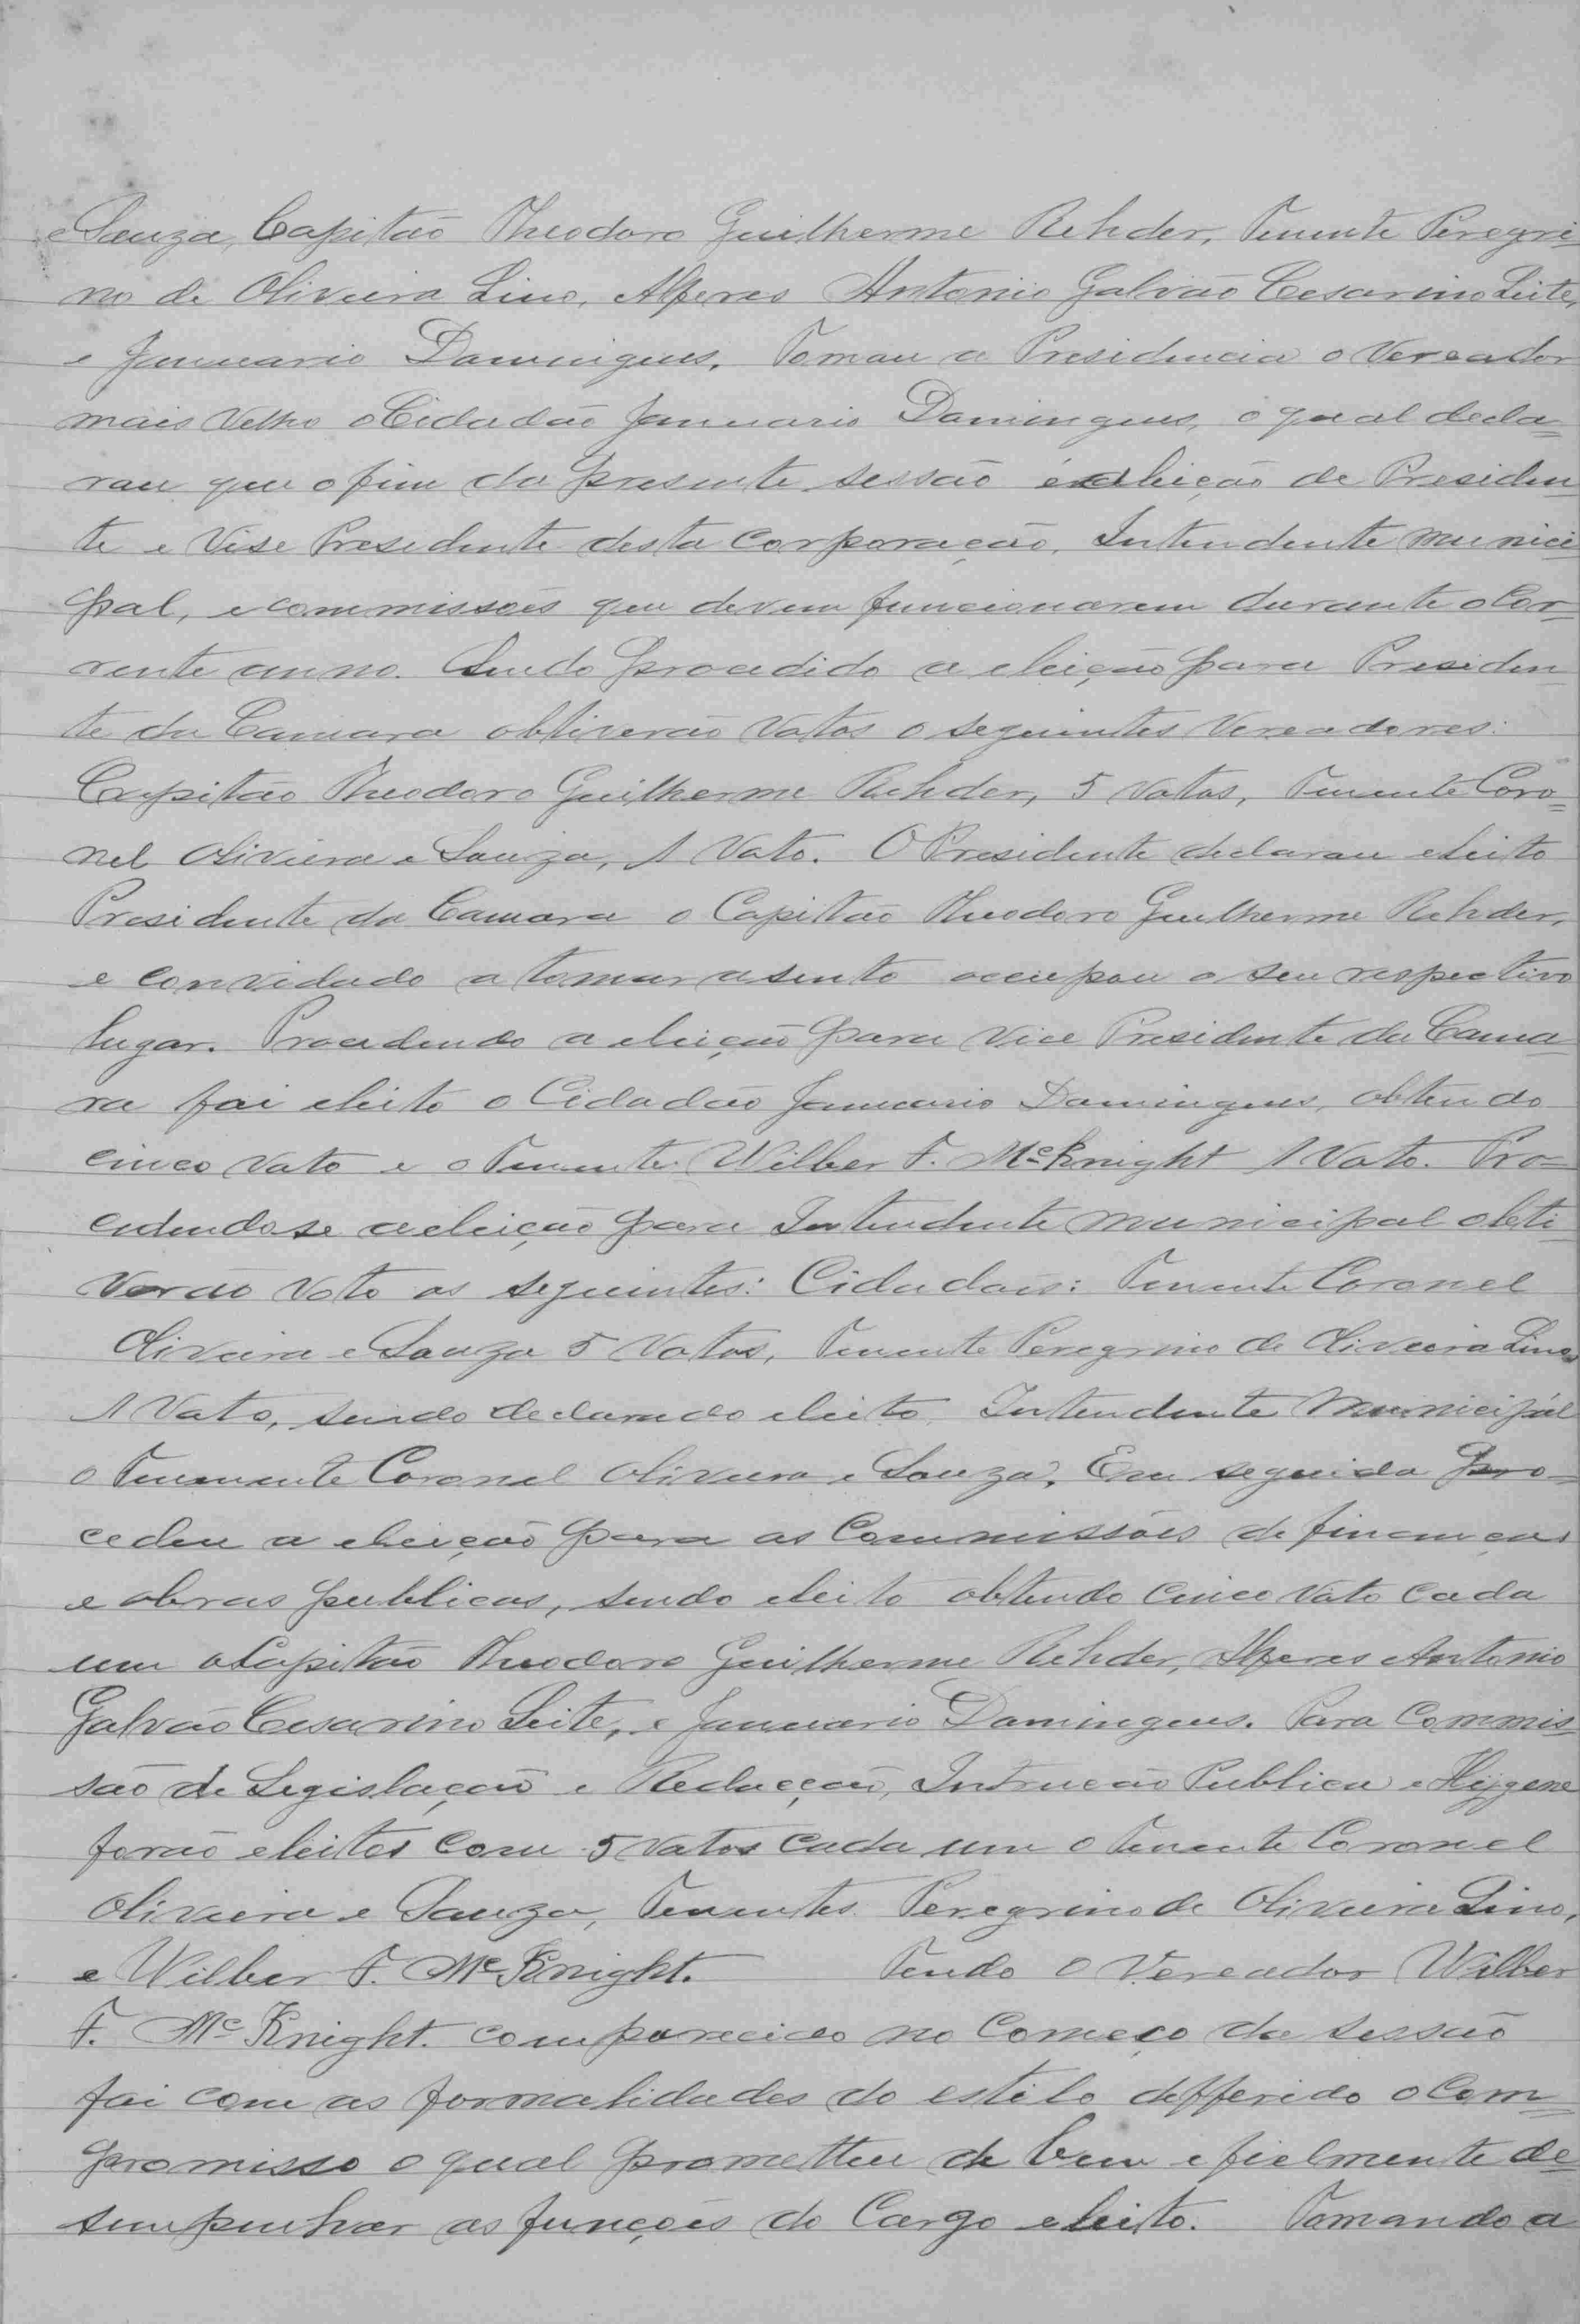 e Souza, Capitão Theodoro Guilherme Rehder, Tenente Peregri=
no de Oliveira Lino, Alferes Antonio Galvão Cesarino Leite,
e Januario Domingues. Tomou a Presidencia o Vereador
mais Velho o Cidadão Januario Domingues, o qual decla=
rou que o fim da presente sessão é a eleição de Presiden
te e Vise Presidente desta Corporação, Intendente Munici
pal, e commissões que devem funcionarem durante o Cor=
rente anno. Sendo procedido a eleição para Presiden
te da Camara obtiverão Votos o seguintes Vereadores:
Capitão Theodoro Guilherme Rehder, 5 Votos, Tenente Coro=
nel Oliveira e Souza, 1 Voto. O Presidente declarou eleito
Presidente da Camara o Capitão Theodoro Guilherme Rehder,
e convidado a tomar asento occupou o seu respectivo
lugar. Procedendo a eleição para Vice Presidente da Cama
ra foi eleito o Cidadão Januario Domingues, obtendo
cinco Voto e o Tenente Wilber F. McKnight 1 Voto. Pro=
cedendose a eleição para Intendente municipal obti
verão Voto os seguintes: Cidadões: Tenente Coronel
Oliveira e Souza 5 Votos, Tenente Peregrino de Oliveira Lino
1 Voto, sendo declarado eleito Intendente Municipal
o Tenente Coronel Oliveira e Souza. Em seguida pro=
cedeu a eleição para as Commissões de finanças
e obras publicas, sendo eleito obtendo cinco Voto cada
um o Capitão Theodoro Guilherme Rehder, Alferes Antonio
Galvão Cesarino Leite, e Januario Domingues. Para Commis
são de Legislação e Redacção, Intrucão Publica e Hijgene
forão eleitos com 5 Votos cada um o Tenente Coronel
Oliveira e Souza, Tenentes Peregrino de Oliveira Lino,
e Wilber F. Mc Knight. Tendo o Vereador Wilber
F. Mc Knight. comparecido no Começo da sessão
foi com as formalidades do estilo defferido o Com=
promisso o qual prometteu de bem e fielmente de
sempenhar as funções do Cargo eleito. Tomando a